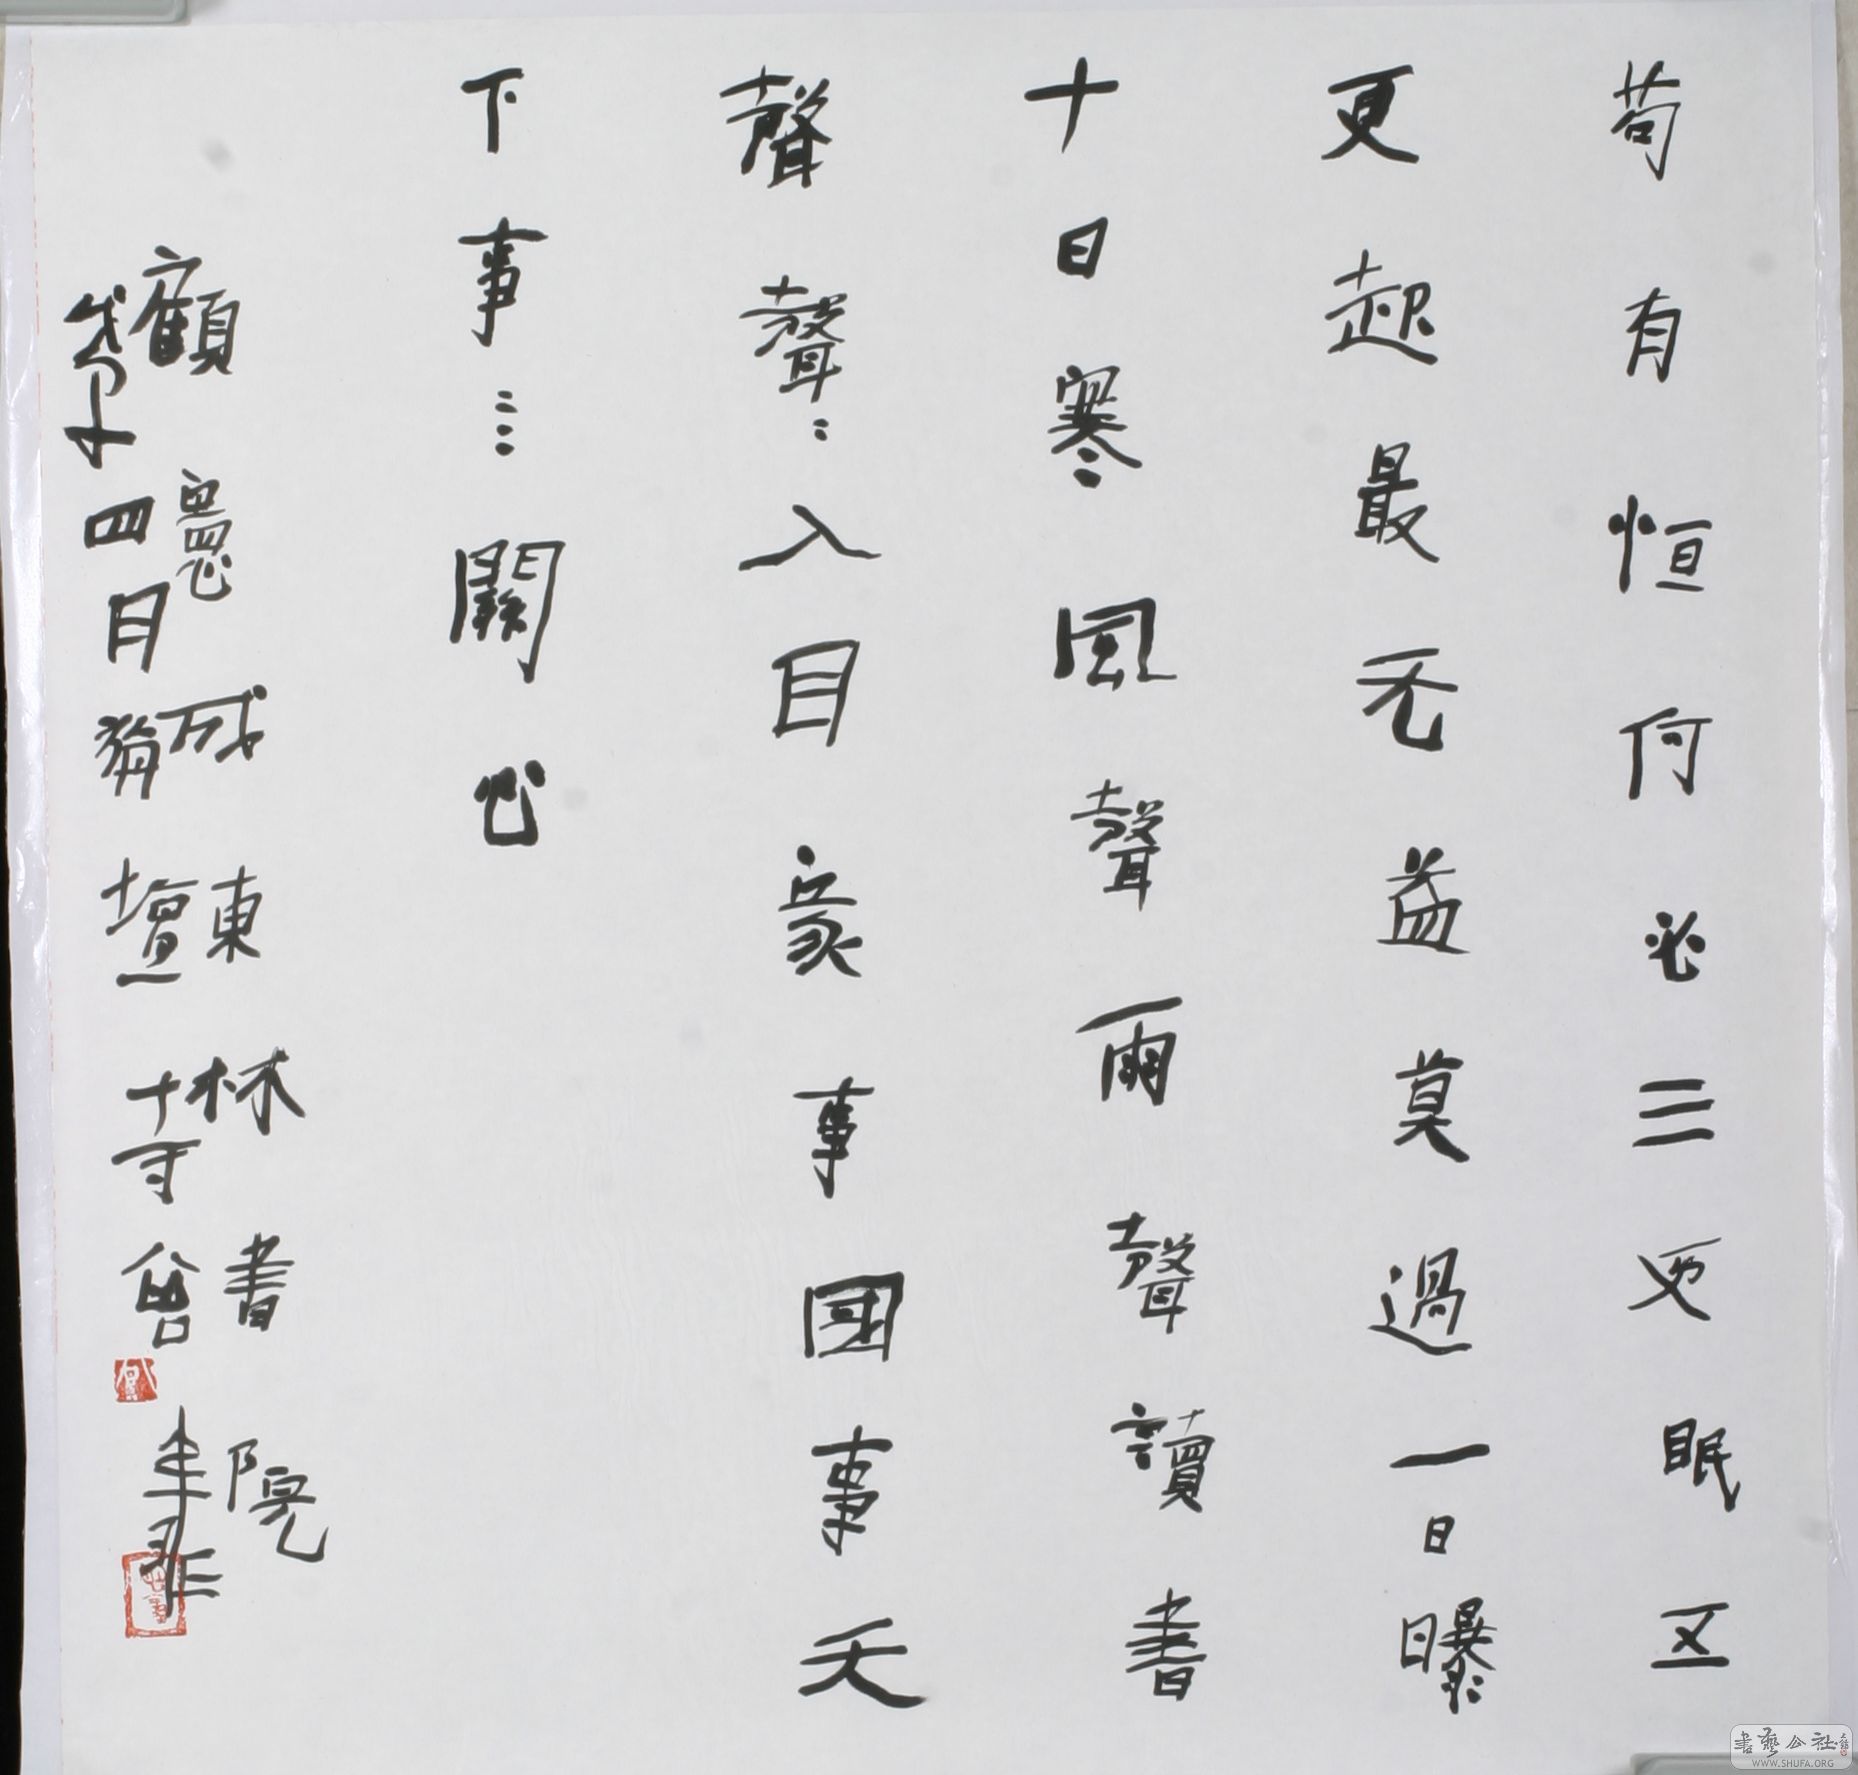 苟有恒何必三更眠五
更起最无益莫過一日曝
十日寒風聲雨聲讀書
聲聲〻入目家事國事天
下事〻〻關心
顧憲成東林書院
四月壇
書藝公社
WWW.SHUFA.ORG